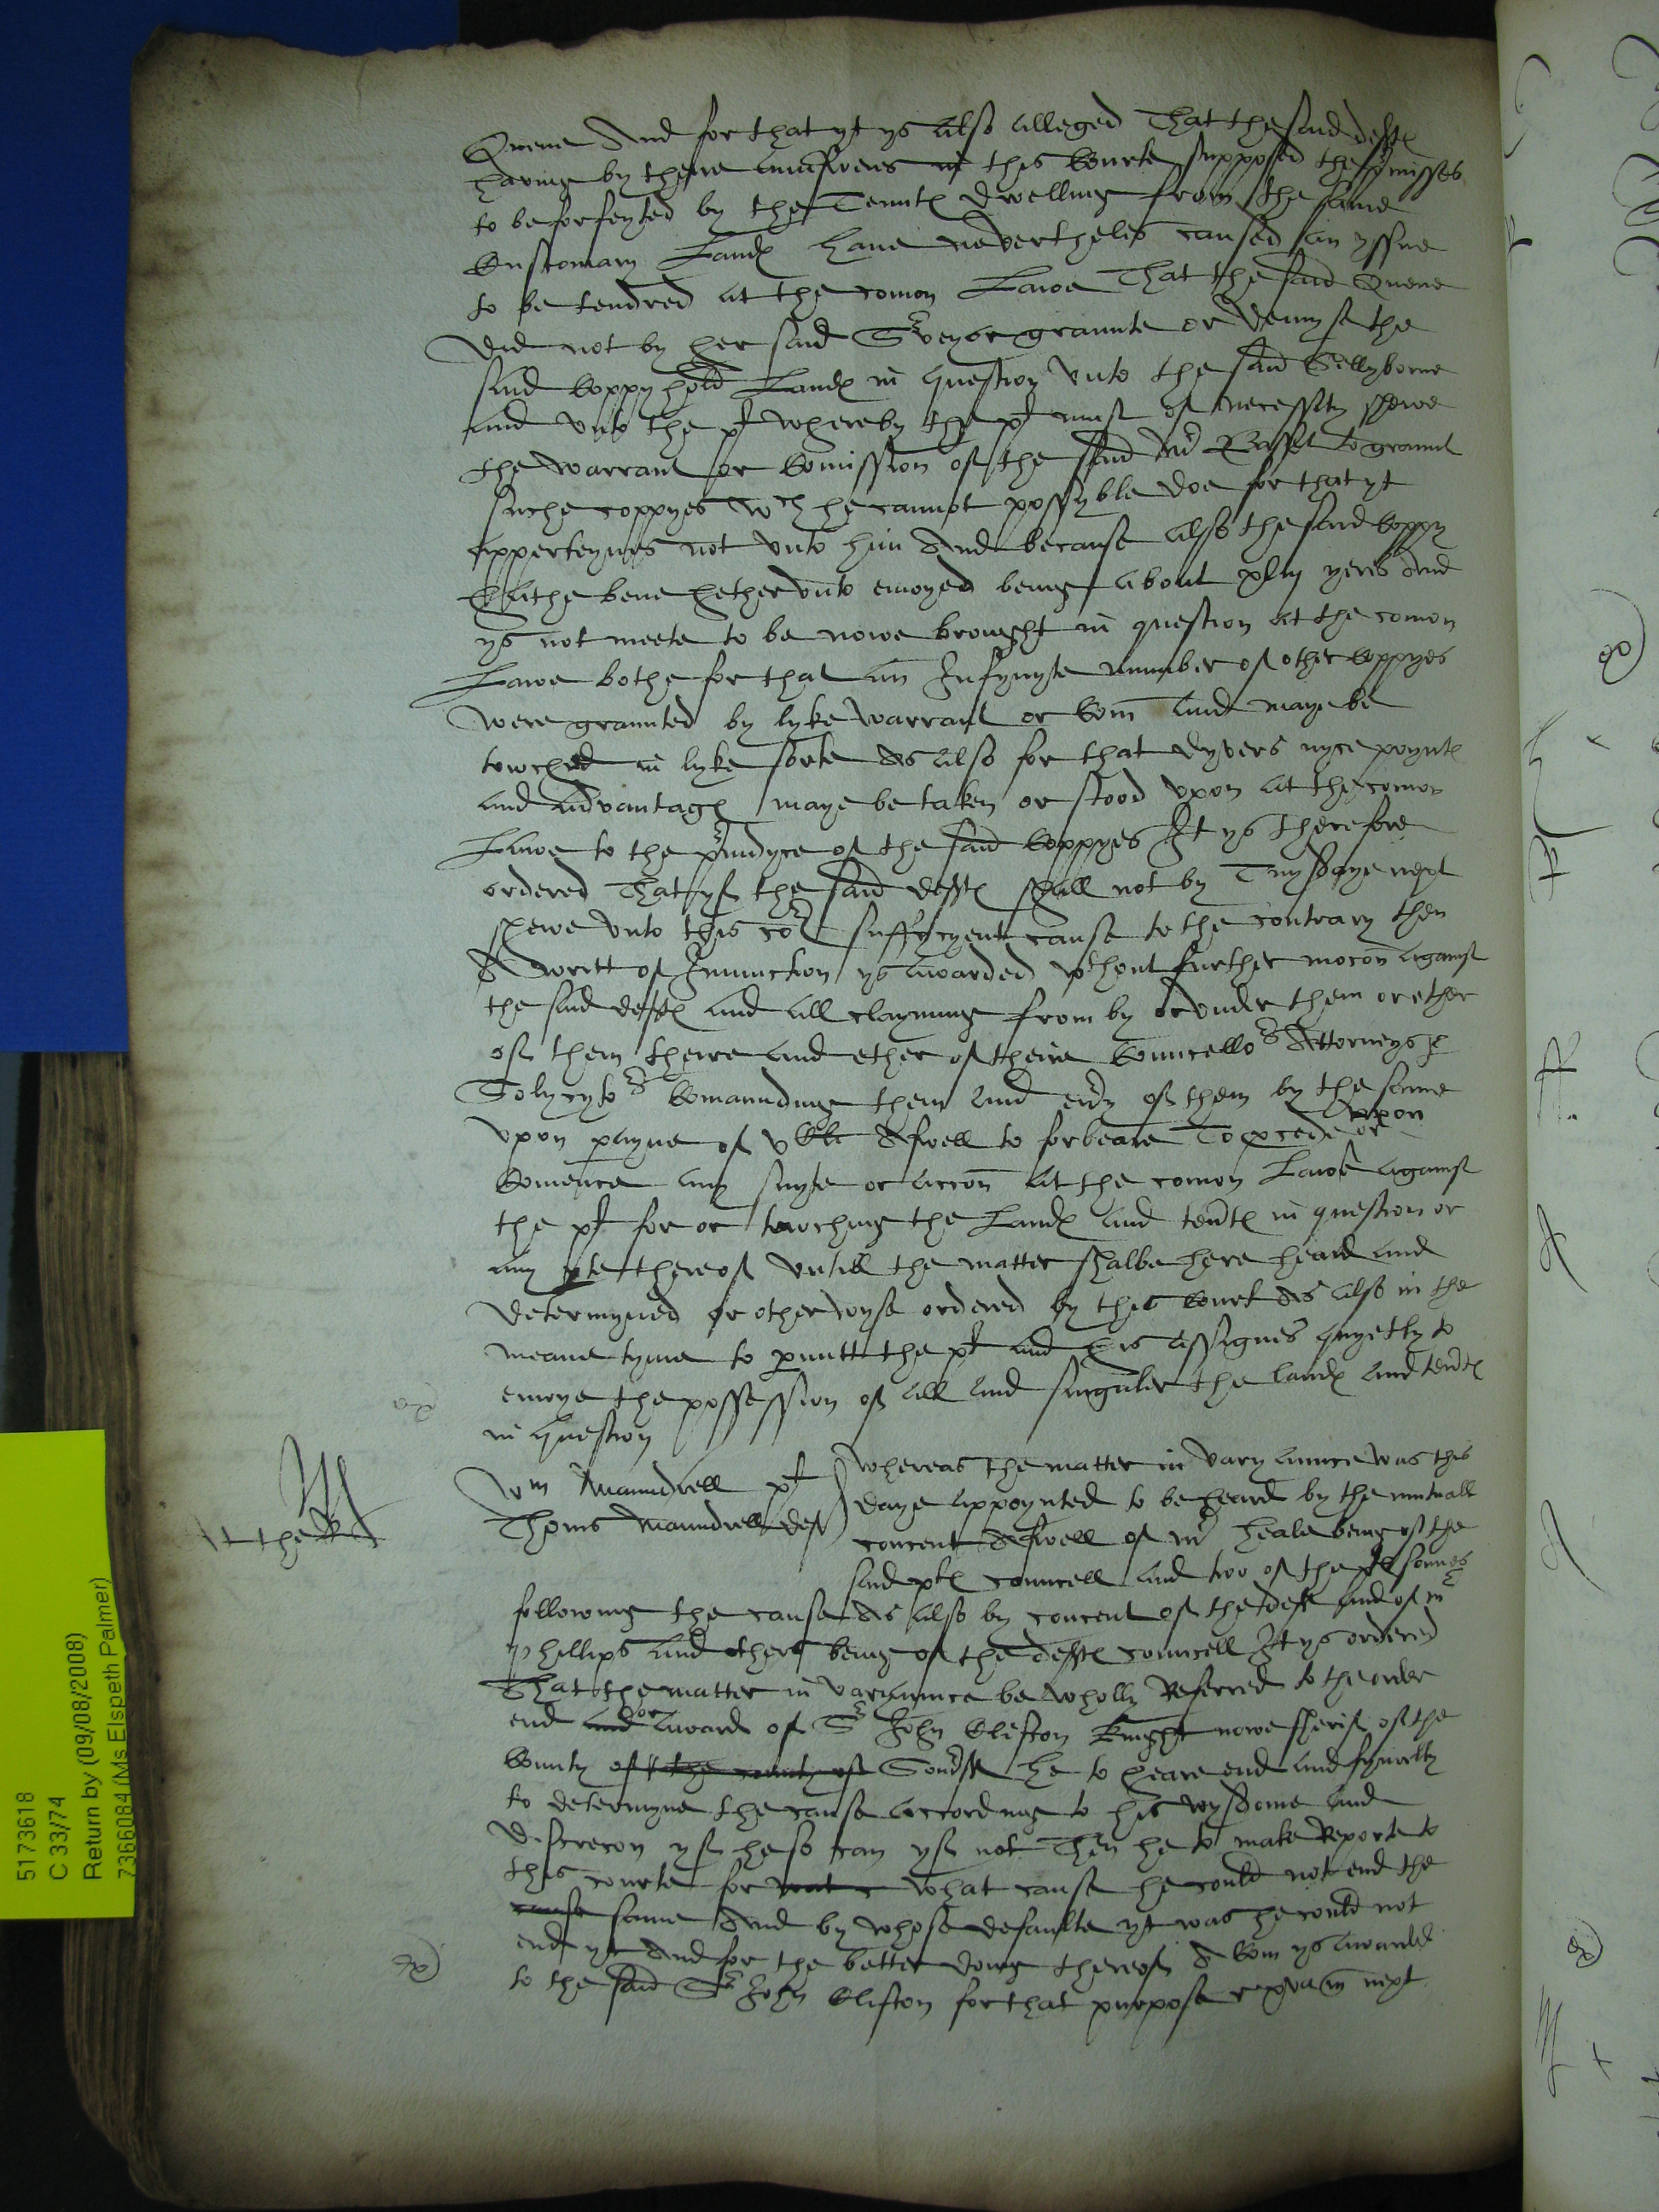 Quene And for that yt ys also alleged That the said defts
having by there aunsweres in this Courte supposed the pmisses
to be forfeyted by the Tennts dwelling from the same
Customary Lands have nevertheles caused an yssue
to be tendred at the comon Lawe That the said Quene
did not by her said Sveyor graunte or demyse the
said Coppyhold Lands in question vnto the said
and vnto the pt whereby the pt must of necessity shewe
the warrant or Comission of the said Mr to graunt
suche coppyes wch he cannot possyble doe for that yt
apperteynes not vnto him And because also the said Coppy
hathe bene hethervnto enioyed being about xlty yeres And
ys not meete to be nowe brought in question at the comon
Lawe bothe for that an Infynyte number of other Coppyes
were graunted by lyke warrant or Com and maye be
towched in lyke sorte As also for that dyvers nyce poynts
and advantags maye be taken or stood vpon at the comon
Lawe to the piudyce of the said Coppyes It ys therefore
ordered That yf the said defts shall not by Tuysdaye next
shewe vnto this cort suffycyent cause to the contrary then
A writt of Iniunction ys awarded wthout further mocon against
the said defts and all clayming from by or vnder them or ether
of them theire and ether of theire Councellors Attorneys &
Solycytors Comaunding them and evy of them by the same
vpon payne of vCli Aswell to forbeare To pcede vpon or
Comence any suyte or accon at the comon Lawe against
the pt for or towching the Lands and tents in question or
any pte thereof vntill the matter shalbe here heard and
determyned or otherwyse ordered by this Court As also in the
meane tyme to pmitt the pt and his assignes quyetly to
enioye the possession of all and singuler the lands and tents
in question
Wm Maundrell pt
Thoms Maundrell deft
Whereas the matter in varyaunce was this
daye appoynted to be heard by the mutuall
concent Aswell of mr Heale being of the
said pts councell and two of the pts sonnes
following the cause As also by concent of the deft and of mr
Phillips and others being of the defts councell It ys ordered
That the matter in varyaunce be wholly Referred to the order
end and or award of Sr John Clifton Knight nowe sherif of the
County of the county of Somst He to heare end and fynally
to determyne the cause according to his wysdome and
discrecon yf he so can yf not Then he to make Reporte to
this courte for what cause he could not end the
cause same And by whose defaulte yt was he could not
end yt And for the better doing thereof A Com ys awarded
to the said Sr John Clifton for that purpose next
5173618
C 33/74
Return by (09/08/2008)
7366084 (Ms Elspeth Palmer)